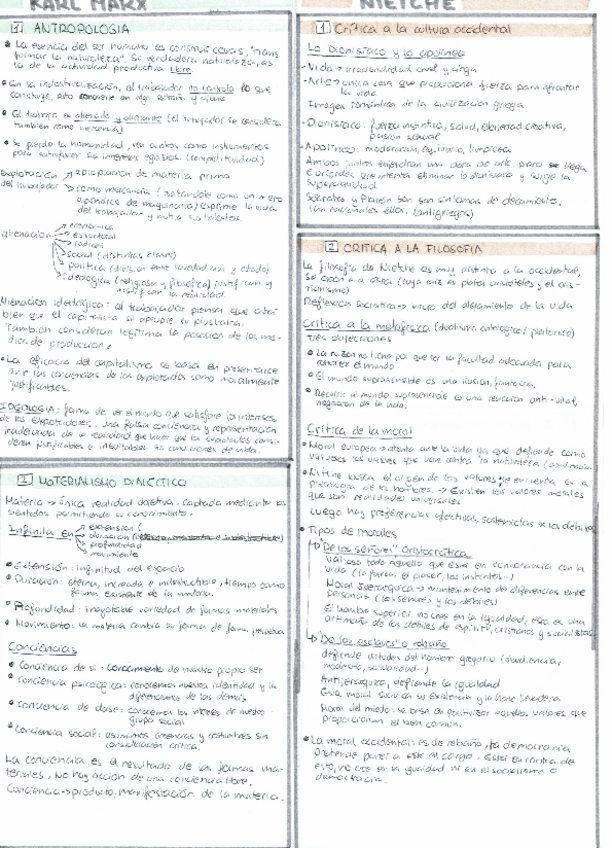 KARL MARX
1 ANTROPOLOGIA
La esencia del ser humano es construir cosas, "trans
formar la naturaleza". Su verdadera naturaleza, es
la de la actividad productiva libre.
En la industrialización, el trabajador no controla lo que
construye, esto convierte en algo extraño y ajeno
El trabajo es alienado y alienante (el trabajador se considera
también como mercancía)
Se pierde la humanidad, ve a otros como instrumentos
para satisfacer sus intereses egoístas. (competitividad)
Explotación → apropiación de materia prima
del trabajador → como mercancía (tratándole como un mero
apéndice de maquinaria) exprime la vida
del trabajador y mutila sus talentos.
alienación → económica
→ estructural
→ radical
→ social (distintas clases)
→ política (división entre sociedad civil y estado)
→ ideológica (religiosa y filosófica) justifican y
mistifican la realidad.
Alienación ideológica: al trabajador piensa que está
bien que el capitalista se apropie su plusvalía.
También consideran legítima la posesión de los me-
dios de producción
La eficacia del capitalismo se basa en presentarse
ante las conciencias de los explotados como moralmente
justificantes.
IDEOLOGIA: forma de ver el mundo que satisface los intereses
de los explotadores. una falsa conciencia y representación
inadecuada de la realidad que hace que los explotados consi-
deren justificables e inevitables las condiciones de vida.
2 MATERIALISMO DIALÉCTICO
Materia → única realidad objetiva. Captada mediante los
sentidos permitiendo su conocimiento.
Infinita en → extensión
→ duración
→ profundidad
→ movimiento
Extensión: infinitud del espacio
Duración: eterna, increada e indestructible, tiempo como
forma existente de la materia.
Profundidad: inagotable variedad de formas materiales
Movimiento: la materia cambia su forma de forma perpetua
Conciencias
Conciencia de sí: conocimiento de nuestro propio ser
Conciencia psicológica: conocemos nuestra identidad y la
diferenciamos de los demás
Conciencia de clase: conocemos los intereses de nuestro
grupo social
Conciencia social: asumimos creencias y costumbres sin
consideración crítica.
La conciencia es el resultado de las formas ma-
teriales, No hay acción de una conciencia libre.
Conciencia → producto, manifestación de la materia.
NIETCHE
1 Crítica a la cultura occidental
Lo Dionisíaco y lo apolíneo
- Vida → irracionalidad cruel y ciega
- Arte → única cosa que proporciona fuerza para afrontar
la vida
Imagen romántica de la civilización griega
- Dionisíaco: fuerza instintiva, salud, ebriedad creativa,
pasión sexual
- Apolíneo: moderación, equilibrio, limpieza
Ambos juntos engendran una obra de arte, pero se llega
Eurípides que intenta eliminar lo dionisíaco y surge la
superficialidad.
Sócrates y Platón son son síntomas de decaimiento,
tan racionales ellos, (antigriegos)
2 CRITICA A LA FILOSOFIA
La filosofía de Nietche es muy distinta a la occidental,
Se opone a esta (cuya raíz es platón aristóteles y el cris-
tianismo)
Reflexión socrática → inicio del alejamiento de la vida
Crítica a la metafísica (dualismo antológico/platónico)
Tres objecciones
La razón no tiene por qué ser la facultad adecuada para
conocer el mundo
El mundo suprasensible es una ilusión, fantasía.
Recurrir al mundo suprasensible es una reacción anti-vital,
negación de la vida.
Crítica de la moral
Moral europea → atenta ante la vida ya que defiende como
valiosos los valores que van contra la naturaleza
Nietche busca el origen de los valores y se encuentra en la
psicología de los hombres. → Existen los valores morales
que son realidades universales
Luego hay preferencias afectivas,
Tipos de morales
→ "De los señores" Aristocrática
valioso todo aquello que está en consonancia con la
vida (la fuerza, el placer, los instintos...)
Moral Jerárquica → mantenimiento de diferencias entre
personas (los señores y los débiles)
El hombre superior, no cree en la igualdad, esto es una
artimaña de los débiles de espíritu, cristianos y socialistas
→ "De los esclavos" o rebaño
defiende virtudes del hombre gregario (obediencia,
modestia, solidaridad...)
Antijerárquica, defiende la igualdad
Esta moral suaviza su existencia y la hace llevadera
Moral del miedo: se basa en positivizar aquellos valores que
proporcionan el bien común.
La moral occidental: es de rebaño, la democracia
pretende poner a este al cargo. Está en contra de
esto, no cree en la igualdad ni en el socialismo o
democracia.